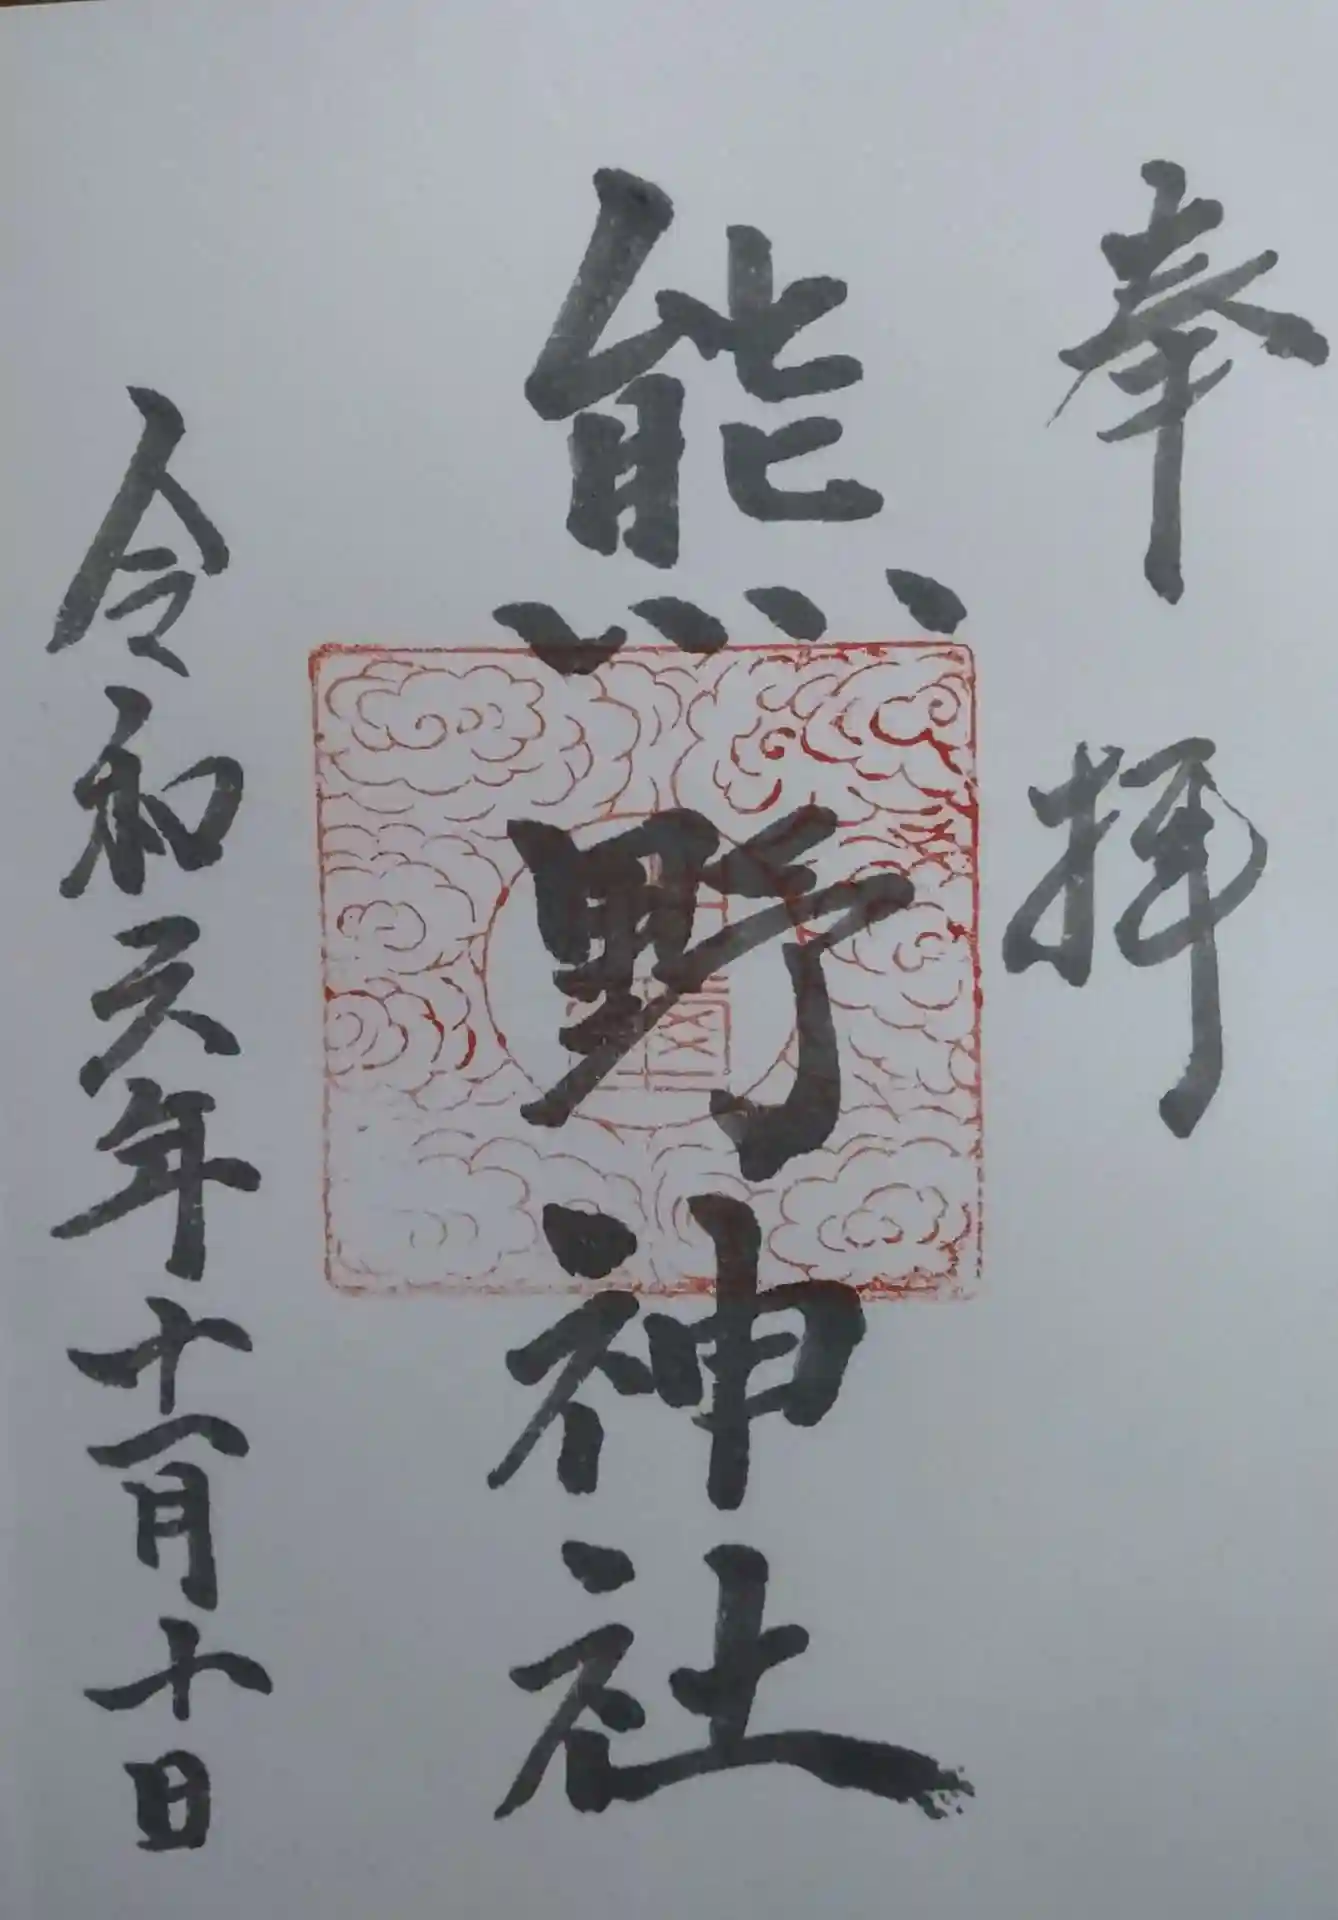 奉拝
熊野神社
令和六年十一月十日